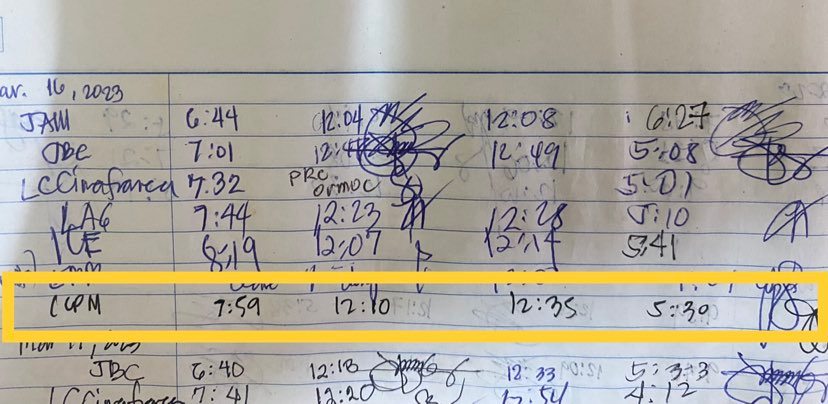 ar. 16, 2023
JAM 6:44 12:04 12:08 6:27
JBC 7:01 12:49 5:08
LCCinafranca 7:32 PRC ormoc 5:01
LAG 7:44 12:23 12:28 5:10
8:19 12:07 12:14 5:41
CCPM 7:59 12:10 12:35 5:30
JBC 6:40 12:18 12:33 5:33
LCCinafranca 7:41 12:20 12:54 4:12